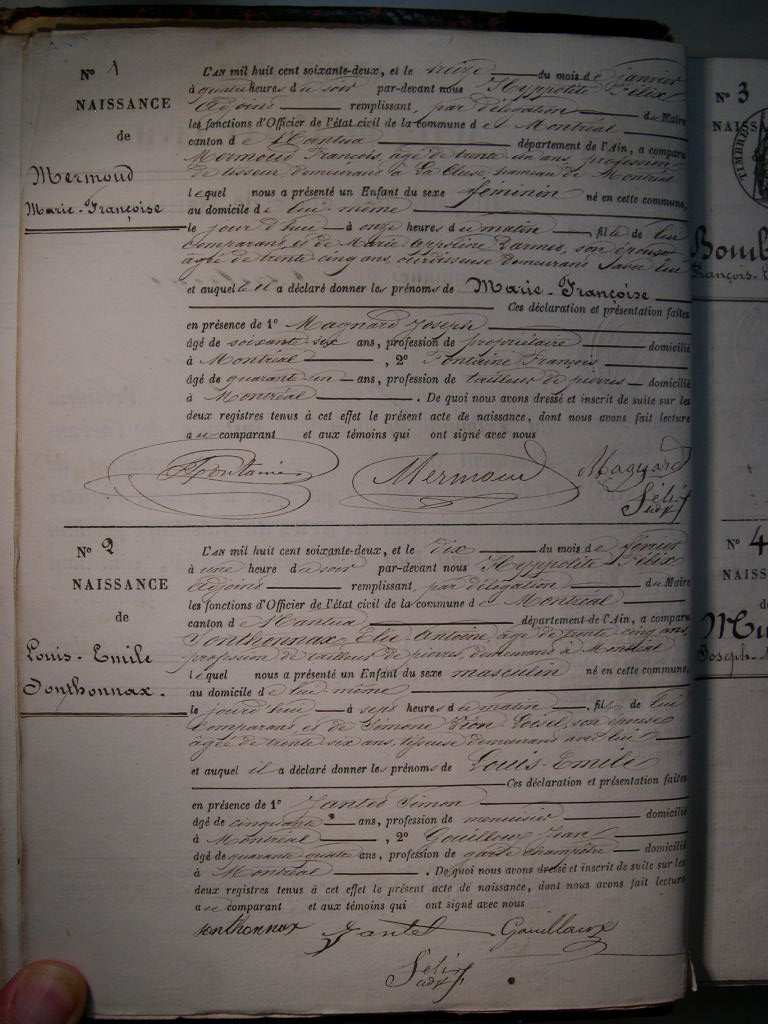 Nº 1
NAISSANCE
de
Mermoud
Marie-Françoise
L'AN mil huit cent soixante-deux, et le seize du mois de janvier
à quatre heures du soir par-devant nous Hyppolite Félix
Adjoint remplissant, par délégation du Maire
les fonctions d'Officier de l'état civil de la commune de Montréal
canton de Nantua département de l'Ain, a comparu
Mermoud François, âgé de trente un ans, profession
de tisseur, demeurant à La Cluse, hameau de Montréal
lequel nous a présenté un Enfant du sexe féminin né en cette commune,
au domicile de lui même
le jour d'hui à onze heures du matin, fille de lui
comparant, et de Marie son épouse
âgée de trente cinq ans, demeurant avec lui
et auquel il a déclaré donner les prénoms de Marie-Françoise
Ces déclaration et présentation faites
en présence de 1º Magnard Joseph
âgé de soixante six ans, profession de propriétaire domicilié
à Montréal, 2º Fontaine François
âgé de quarante un ans, profession de tailleur de pierres domicilié
à Montréal. De quoi nous avons dressé et inscrit de suite sur les
deux registres tenus à cet effet le présent acte de naissance, dont nous avons fait lecture
au comparant et aux témoins qui ont signé avec nous
Fontaine Mermoud Magnard
Félix
adjt
Nº 2
NAISSANCE
de
Louis-Emile
Sonthonnax.
L'AN mil huit cent soixante-deux, et le dix du mois de février
à une heure du soir par-devant nous Hyppolite Félix
Adjoint remplissant, par délégation du Maire
les fonctions d'Officier de l'état civil de la commune de Montréal
canton de Nantua département de l'Ain, a comparu
Sonthonnax Elie-Antoine, âgé de trente cinq ans,
profession de tailleur de pierres, demeurant à Montréal
lequel nous a présenté un Enfant du sexe masculin né en cette commune,
au domicile de lui même
le jourd'hui à sept heures du matin, fils de lui
comparant, et de Simone son épouse
âgée de trente six ans, demeurant avec lui
et auquel il a déclaré donner les prénoms de Louis-Emile
Ces déclaration et présentation faites
en présence de 1º Jantet Simon
âgé de cinquante ans, profession de menuisier domicilié
à Montréal, 2º Gouilloux Jean
âgé de quarante quatre ans, profession de garde champêtre domicilié
à Montréal. De quoi nous avons dressé et inscrit de suite sur les
deux registres tenus à cet effet le présent acte de naissance, dont nous avons fait lecture
au comparant et aux témoins qui ont signé avec nous
sonthonnax Jantet Gouilloux
Félix
adjt
Nº 3
NAISSA
TIMBRE
Boul
François-
Nº 4
NAISS
de
Mu
Joseph-